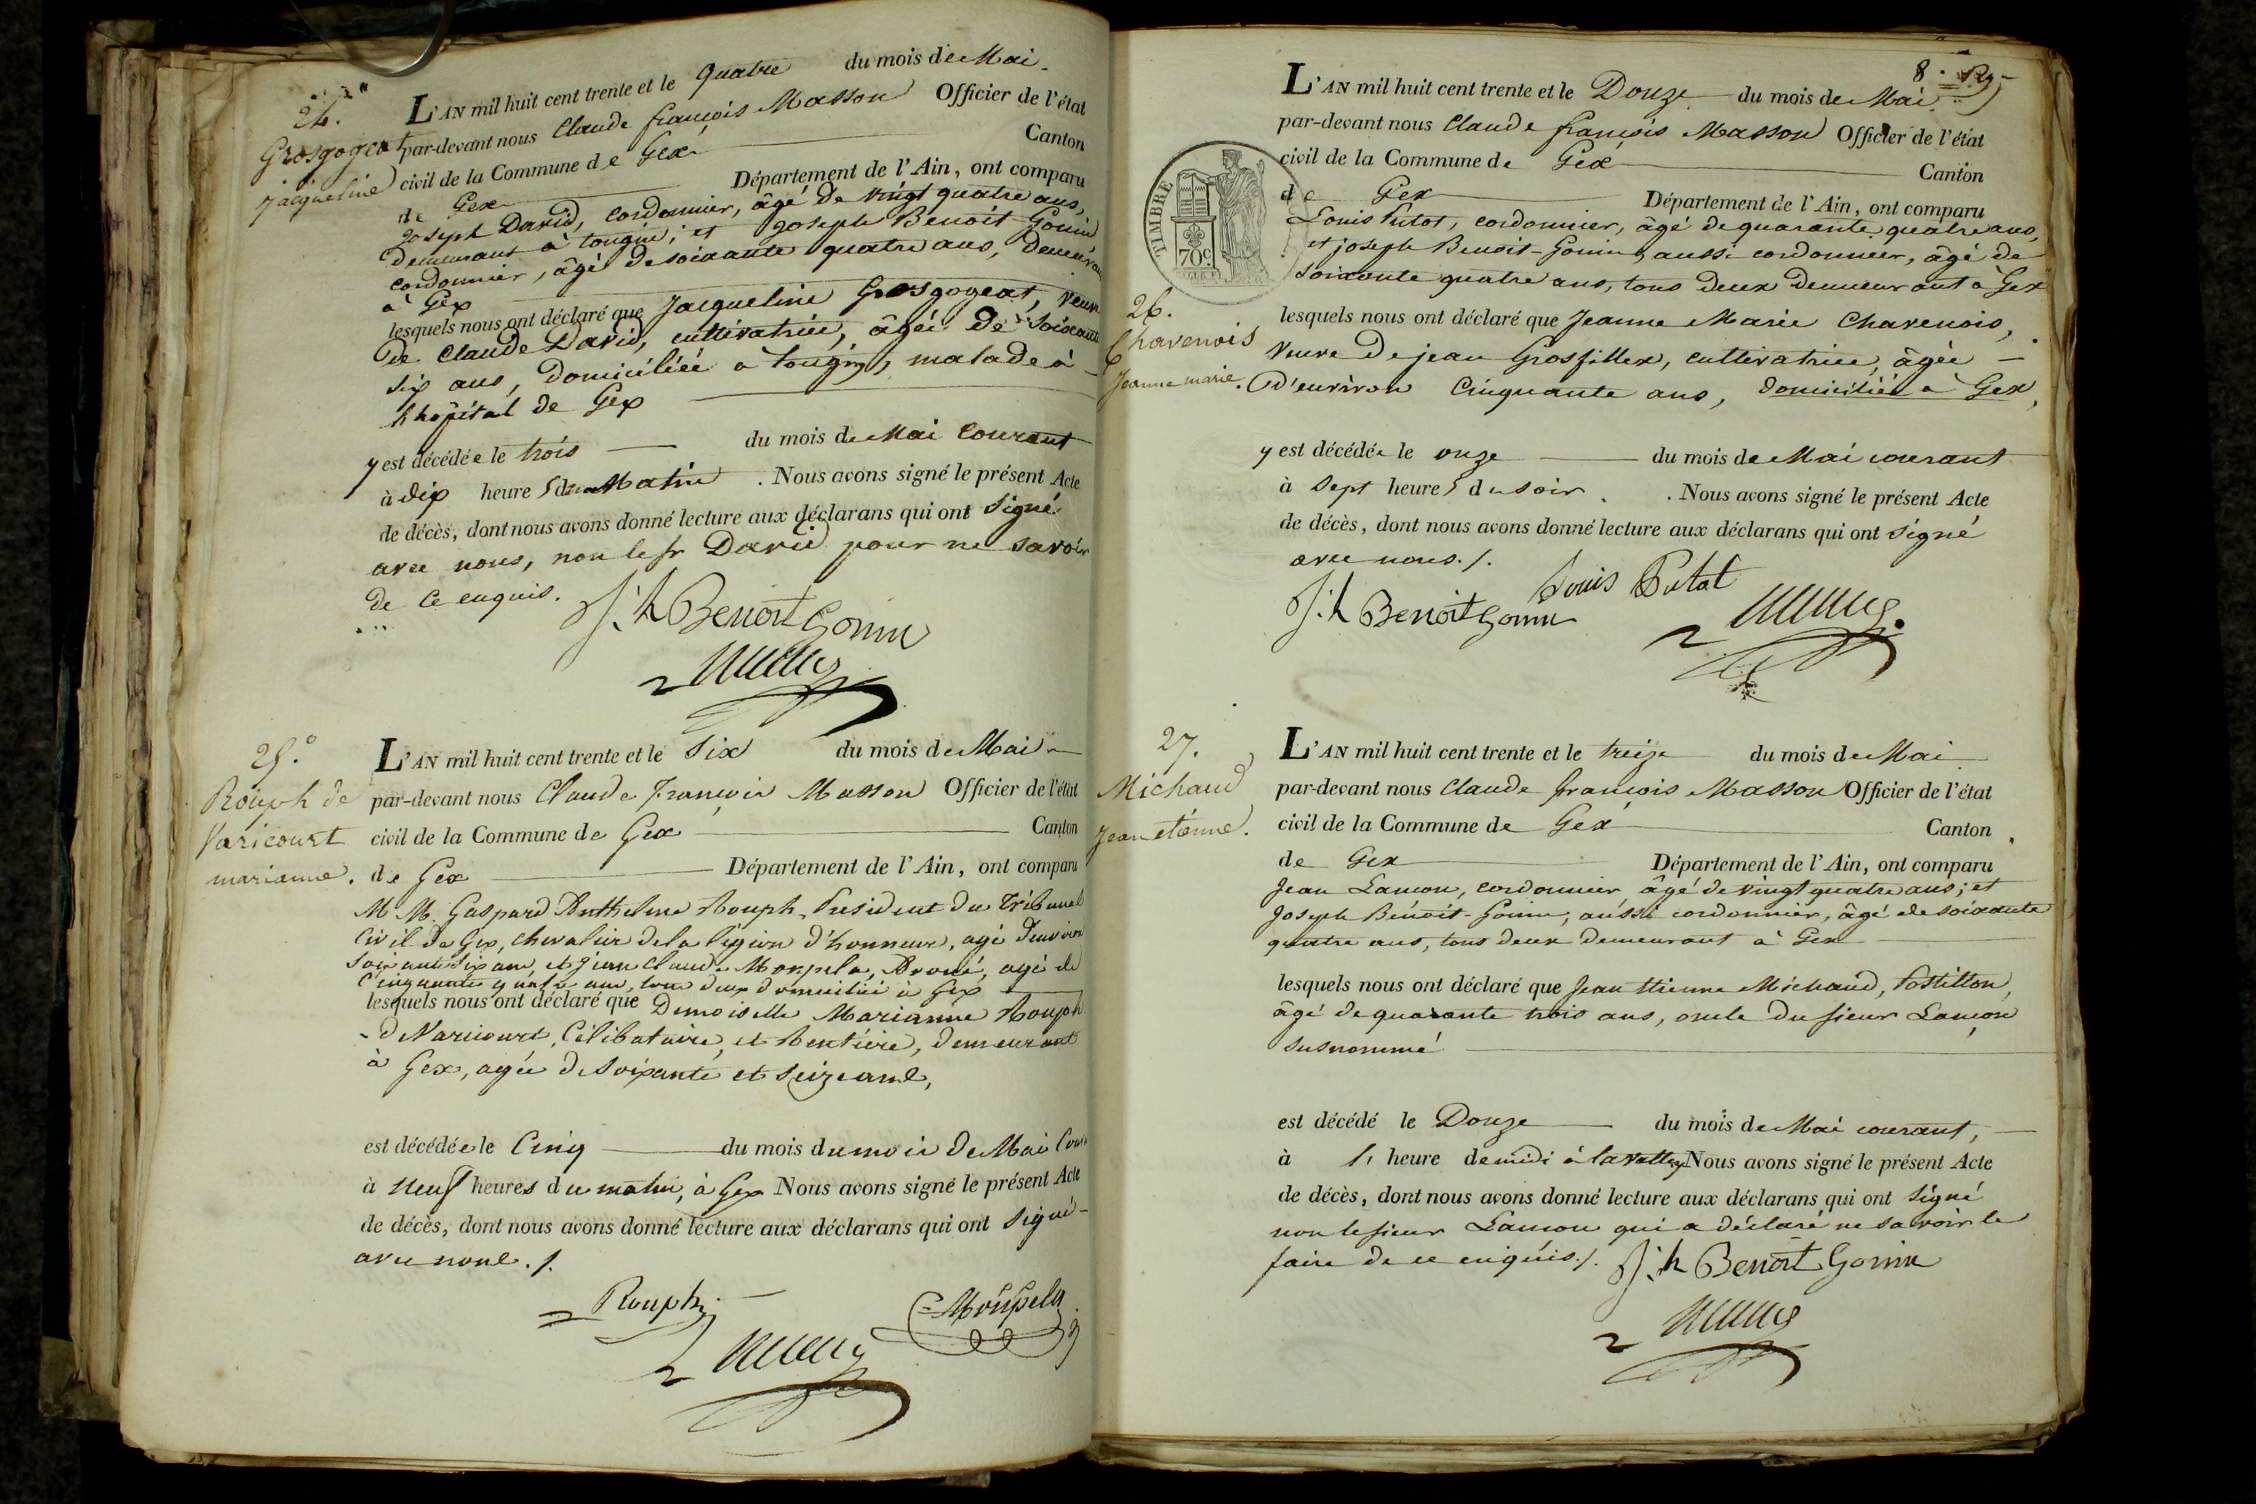 24.
Grosgogeat
jacqueline
L'AN mil huit cent trente et le quatre du mois de Mai
par-devant nous Claude françois Masson Officier de l'état
civil de la Commune de Gex Canton
de Gex Département de l'Ain, ont comparu
Joseph David, cordonnier, âgé de vingt quatre ans,
demeurant à tougin; et Joseph Benoit Gonin
cordonnier, âgé de soixante quatre ans, demeurant
à Gex
lesquels nous ont déclaré que Jacqueline Grosgogeat, veuve
de Claude David, cultivatrice, âgée de soixante
six ans, domiciliée à tougin, malade à
l'hôpital de Gex
y est décédée le trois du mois de Mai courant
à dix heures du Matin. Nous avons signé le présent Acte
de décès, dont nous avons donné lecture aux déclarans qui ont signé
avec nous, non le sr David pour ne savoir
de ce enquis.
J:h Benoit Gonin
25.°
Rouph de
Varicourt
marianne.
L'AN mil huit cent trente et le six du mois de Mai
par-devant nous Claude François Masson Officier de l'état
civil de la Commune de Gex Canton
de Gex Département de l'Ain, ont comparu
M M. Gaspard Anthelme Rouph, Président du Tribunal
Civil de Gex, chevalier de la légion d'honneur, agé d'environ
soixante six ans, et Jean Claude Monpela, Avoué, agé de
Cinquante quatre ans, tous deux domiciliés à Gex
lesquels nous ont déclaré que Demoiselle Marianne Rouph
de Varicourt, Célibataire, et Rentière, demeurant
à Gex, agée de soixante et seize ans,
est décédée le Cinq du mois du mois de Mai Cour
à neuf heures du matin, à Gex Nous avons signé le présent Acte
de décès, dont nous avons donné lecture aux déclarans qui ont signé
avec nous./.
Rouph
Monpela
8.
TIMBRE
70c.
26.
Chavenois
Jeanne marie.
L'AN mil huit cent trente et le Douze du mois de Mai
par-devant nous Claude françois Masson Officier de l'état
civil de la Commune de Gex Canton
de Gex Département de l'Ain, ont comparu
Louis Putot, cordonnier, âgé de quarante quatre ans,
et joseph Benoit-Gonin, aussi cordonnier, âgé de
soixante quatre ans, tous deux demeurant à Gex
lesquels nous ont déclaré que Jeanne Marie Chavenois,
veuve de jean Grosfillex, cultivatrice, âgée
d'environ Cinquante ans, domiciliée à Gex,
y est décédée le onze du mois de Mai courant
à sept heures du soir. . Nous avons signé le présent Acte
de décès, dont nous avons donné lecture aux déclarans qui ont signé
avec nous./.
Louis Putot
J:h Benoit Gonin
27.
Michaud
Jean etienne.
L'AN mil huit cent trente et le treize du mois de Mai
par-devant nous Claude françois Masson Officier de l'état
civil de la Commune de Gex Canton
de Gex Département de l'Ain, ont comparu
Jean Lancon, cordonnier âgé de vingt quatre ans; et
Joseph Benoit-Gonin, aussi cordonnier, âgé de soixante
quatre ans, tous deux demeurant à Gex
lesquels nous ont déclaré que Jean Etienne Michaud, Postillon,
âgé de quarante trois ans, oncle du sieur Lançon
susnommé
est décédé le Douze du mois de Mai courant,
à heure de midi à lavattay Nous avons signé le présent Acte
de décès, dont nous avons donné lecture aux déclarans qui ont signé
non le sieur Lancon qui a déclaré ne savoir le
faire de ce enquis./.
J:h Benoit Gonin